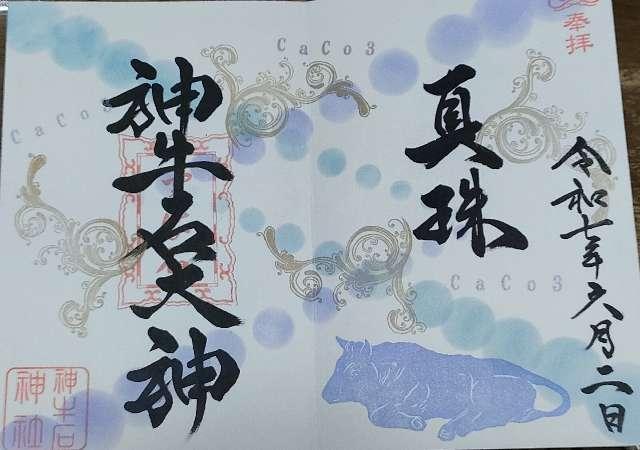 奉拝
真珠
令和七年六月二日
CaCo3
CaCo3
CaCo3
神牛石大神
神牛石
神社